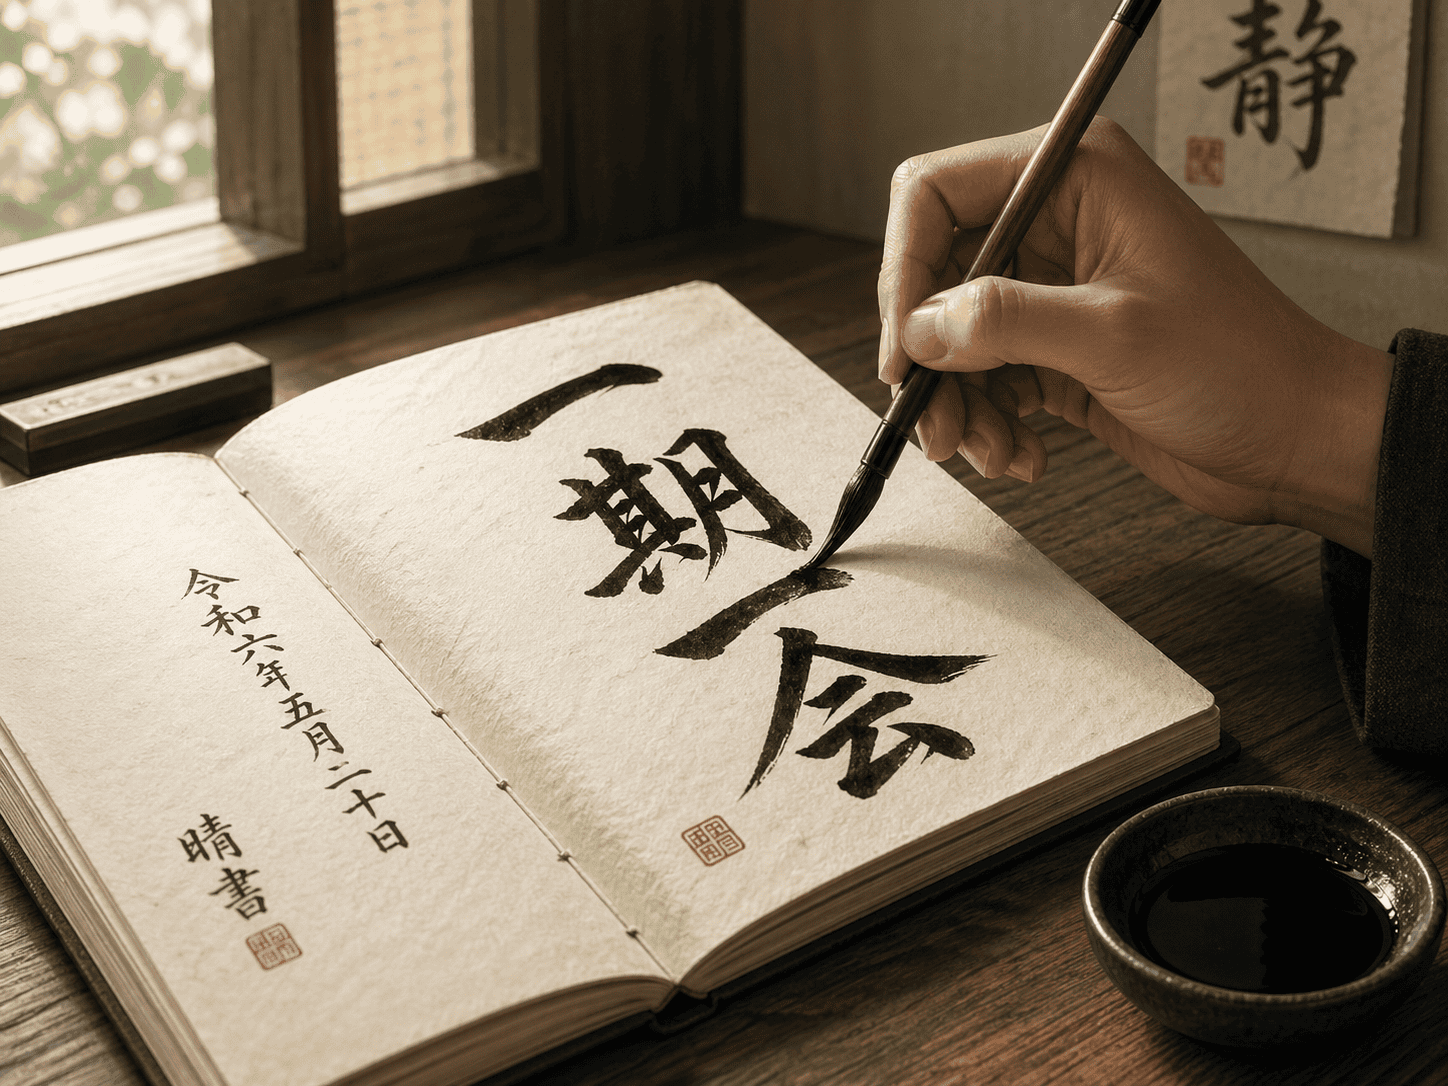 一期一会
令和六年五月二十日
晴書
静